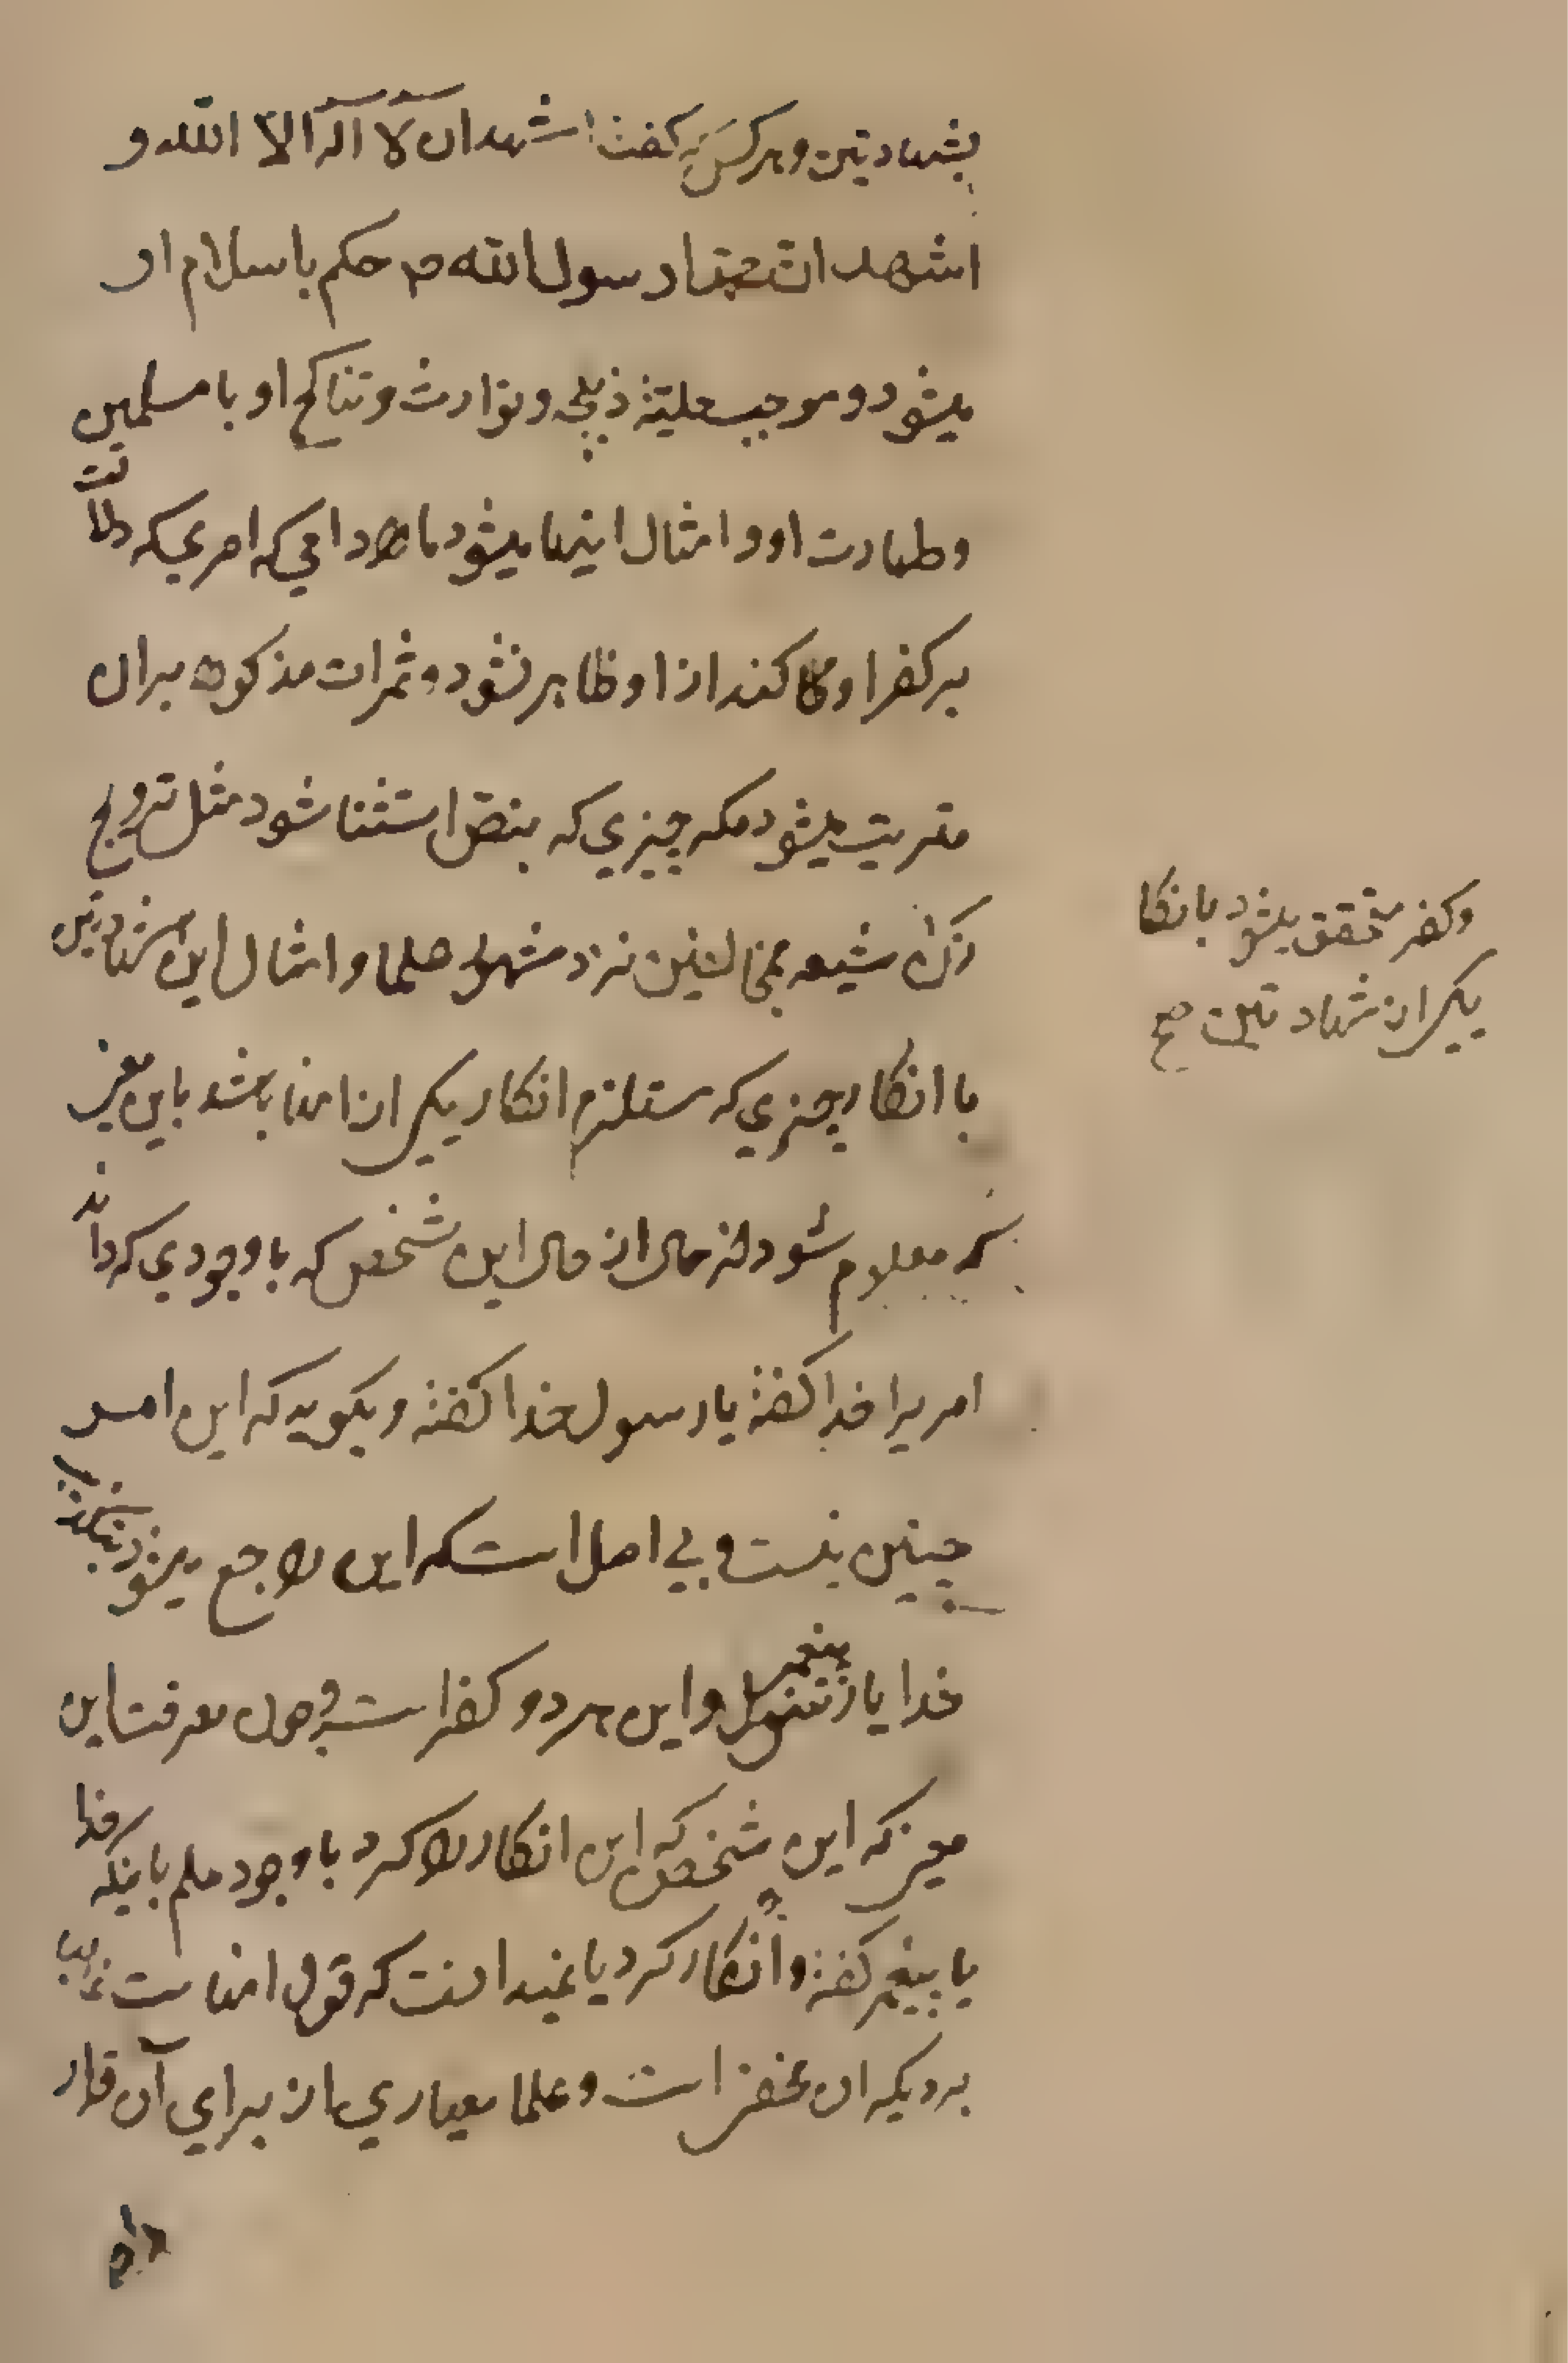 بشهادتین و هر کس که گفت اشهد ان لا اله الا الله و
اشهد ان محمدا رسول الله ص حکم باسلام او
میشود و موجب حلیة ذبیحه و توارث و تناکح او با مسلمین
و طهارت او و امثال اینها میشود مادامی که امری که دلالت
بر کفر او کند از او ظاهر نشود و ثمرات مذکوره بران
مترتب میشود مکر چیزی که بنص استثنا شود مثل تزویج
زن شیعه بمخالفین نزد مشهور علما و امثال این شهادتین
وکفر متحقق میشود بانکار
یکی از شهادتین صح
با انکار چیزی که مستلزم انکار یکی از انها باشد باین معنی
که معلوم شود از حال این شخص که با وجودی که داند
امریرا خدا کفته یا رسول خدا کفته و بکوید که این امر
چنین نیست و بی اصل است که این راجع میشود بتکذیب
خدا یا پیغمبر و این هر دو کفر است و چون معرفت این
معنی که این شخص که این انکار را کرد با وجود علم باینکه خدا
یا پیغمبر کفته و انکار کرد یا نمیدانست که قول انهاست
بر دیکران مخفی است و علما معیاری از برای آن قرار